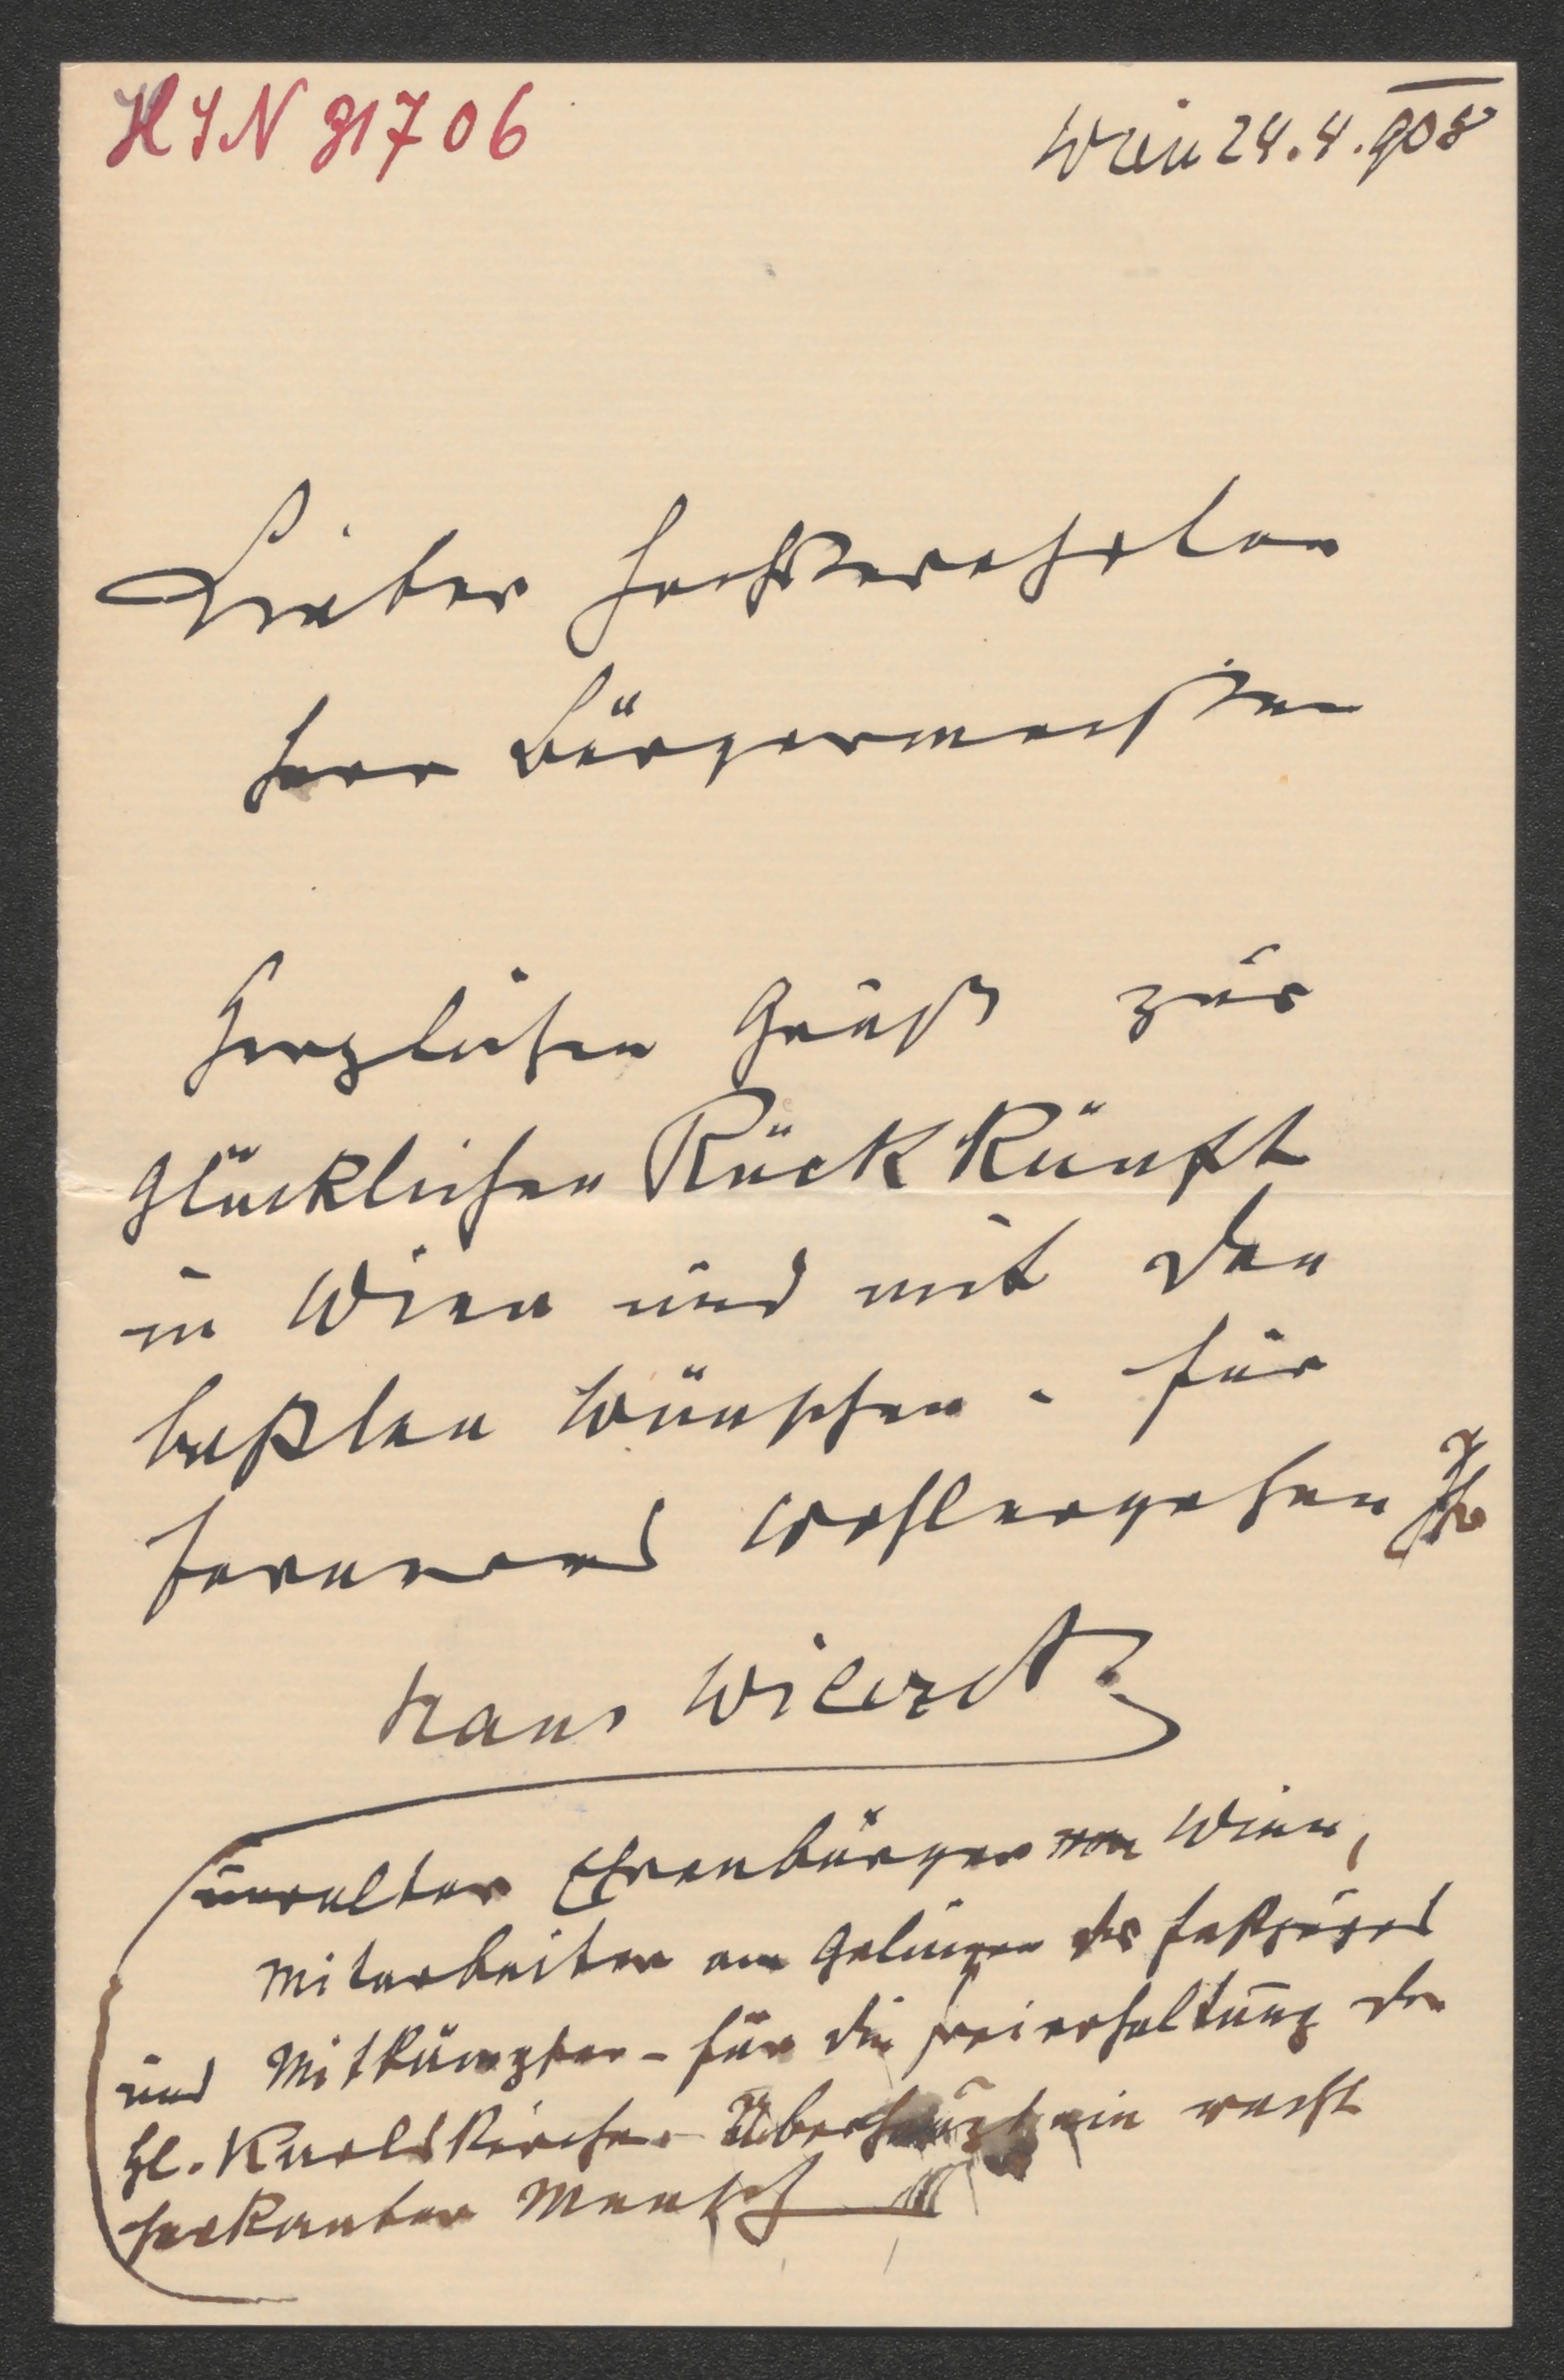 HIN 91706
Wien 24.4.908
Lieber hochverehrter
Herr Bürgermeister
Herzlichen Gruß zur
glücklichen Rückkunft
in Wien und mit den
besten Wünschen. für
ferneres Wohlergehen Ihr
Hans Wilczek
uralter Ehrenbürger von Wien,
Mitarbeiter am Gelingen des Festzuges
und Mitkämpfer - für die Freierhaltung der
hl. Karlskirche. Überhaupt ein recht
Mensch